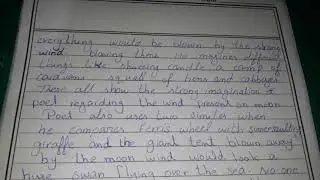 everything would be blown by the strong
wind blowing there. He imagines different
things like shivering candle, a camp of
caravans, squall of hens and cabbages.
These all show the strong imagination of
poet regarding the wind present on moon.
Poet also uses two similes when
he compares ferris wheel with somersaulting
giraffe and the giant tent blown away
by the moon wind would look a
huge swan flying over the sea. No one